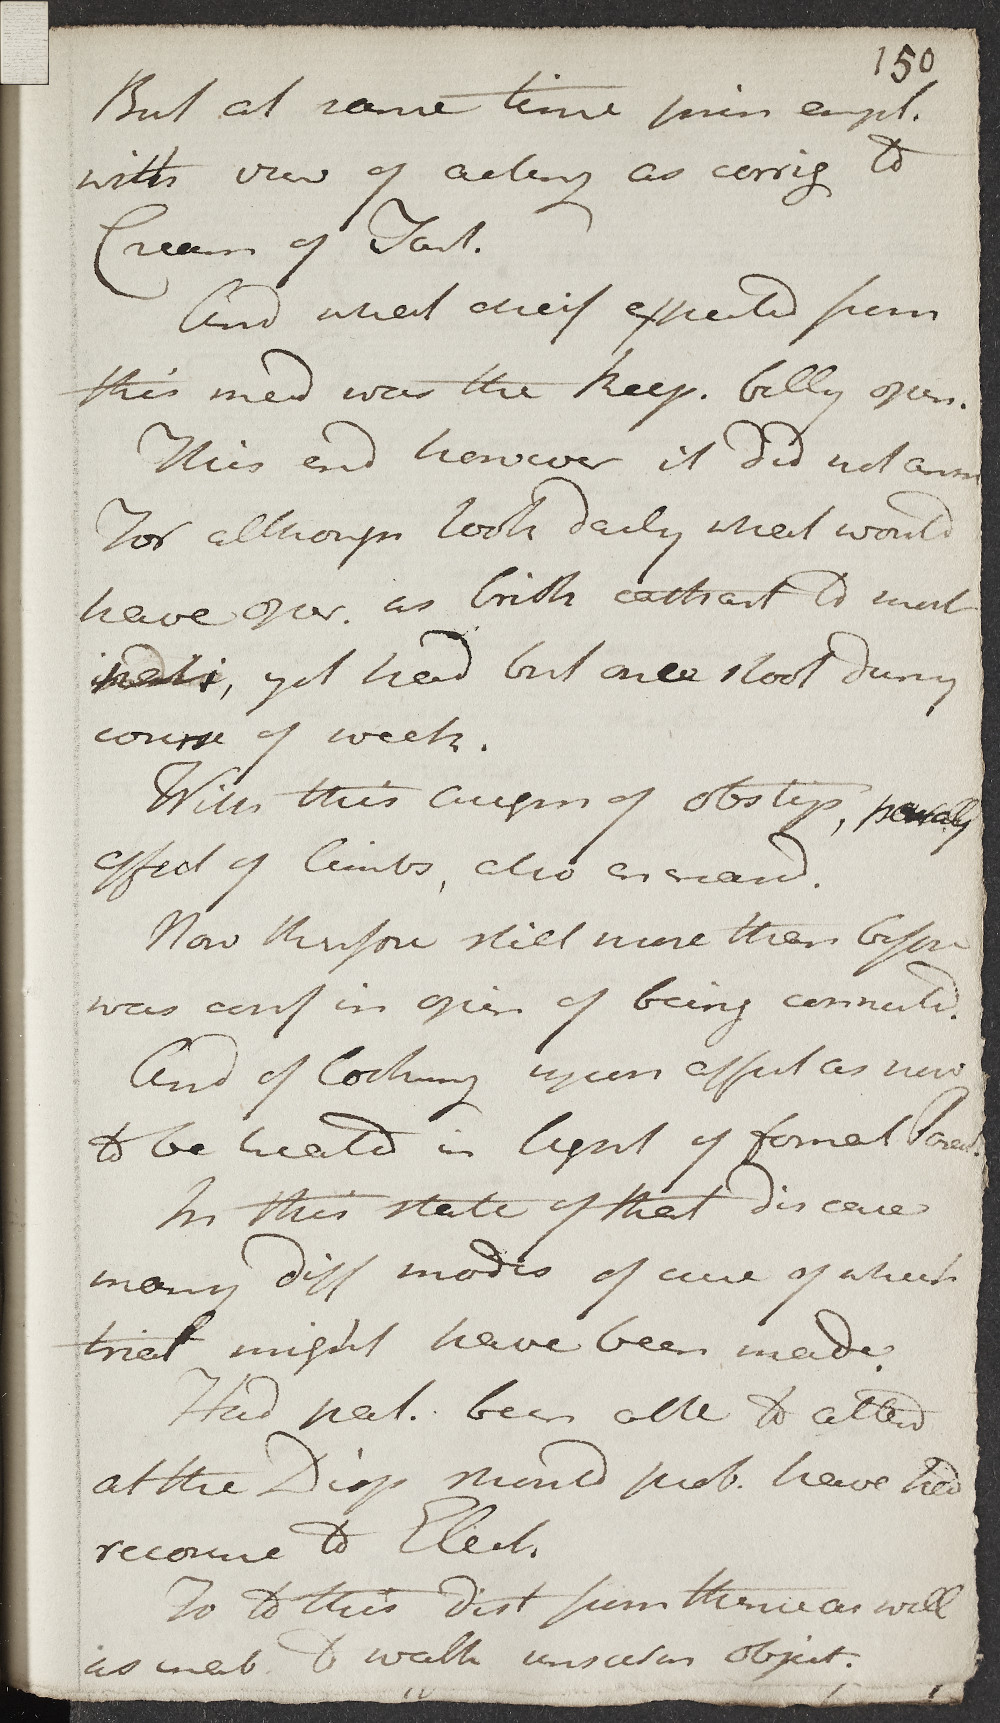 150
But at same time prin empl.
with view of acting as corrig to
Cream of Tart.
And what cheif expected from
this med was the keep. belly open.
This end however it did not
For although took daily what would
have oper. as brisk cathart to most
yet had but once stool during
course of week.
With this augm of obstip,
affect of limbs, also
Now therefore still more than before
was conf in opin of being connected.
And of looking upon affect as now
to be treated in light of formal
In this state of that disease
many diff modes of cure of which
trial might have been made.
Had pat. been able to attend
at the Disp should prob. have had
recourse to Elect.
To to this dist from thence as well
as inab. to walk unsurm object.